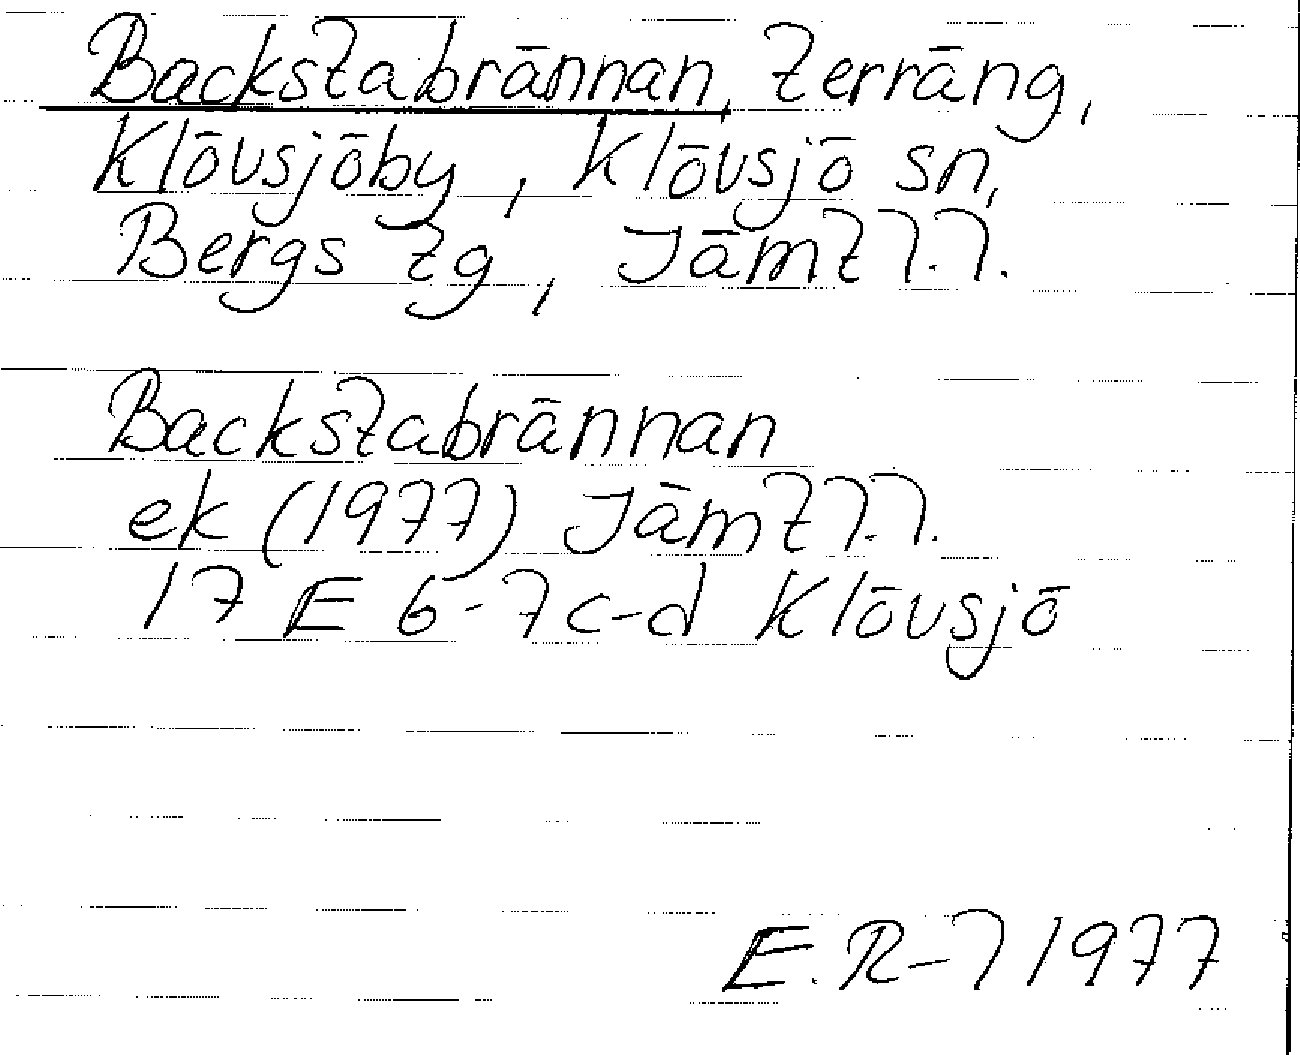 Backstabrännan, terräng,
Klövsjöby, Klövsjö sn,
Bergs tg, Jämtl.l.
Backstabrännan
ek (1977) Jämtl.l.
17 E 6-7 c-d Klövsjö
E.R-l 1977